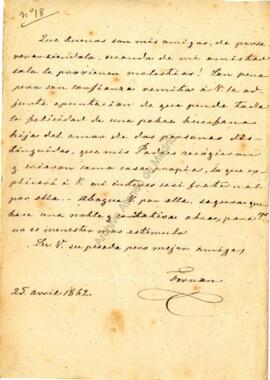 nº 18
Que buenas son mis amigas, de perse
verar siéndolo, cuando de mi amistad
solo le provienen molestias! Con pena
pero con confianza remito á V. la ad
junta apuntacion de que pende toda
la felicidad de una pobre huerfana
hija del amor de dos personas dis-
tinguidas, que mis Padres recogieron
y criaron como cosa propia, lo que es
plicará á V. mi interes casi fraternal
por ella. Abogue V. por ella, segura que
hace una noble y caritativa obra, para V.
no es menester mas estimulo
De V. su pesada pero mejor amiga,
Fernan
25. avril 1862.